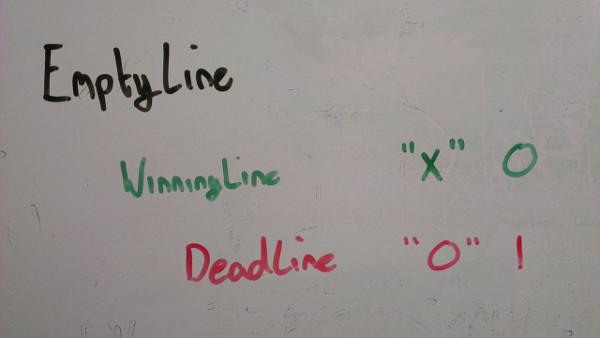 EmptyLine
WinningLine "X" 0
DeadLine "O" 1